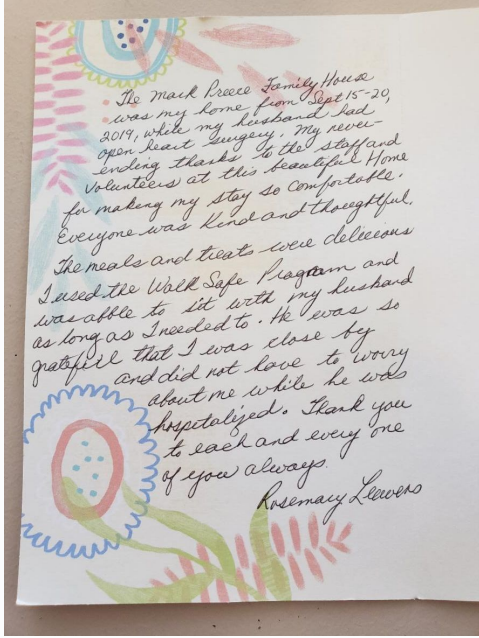 The Mark Preece Family House
was my home from Sept 15-20,
2019, while my husband had
open heart surgery. My never-
ending thanks to the staff and
Volunteers at this beautiful Home
for making my stay so comfortable.
Everyone was Kind and thoughtful.
The meals and treats were delicious
I used the Walk Safe Program and
was abble to sit with my husband
as long as I needed to. He was so
gratefull that I was close by
and did not have to worry
about me while he was
hospitalized. Thank you
to each and every one
of you always.
Rosemary